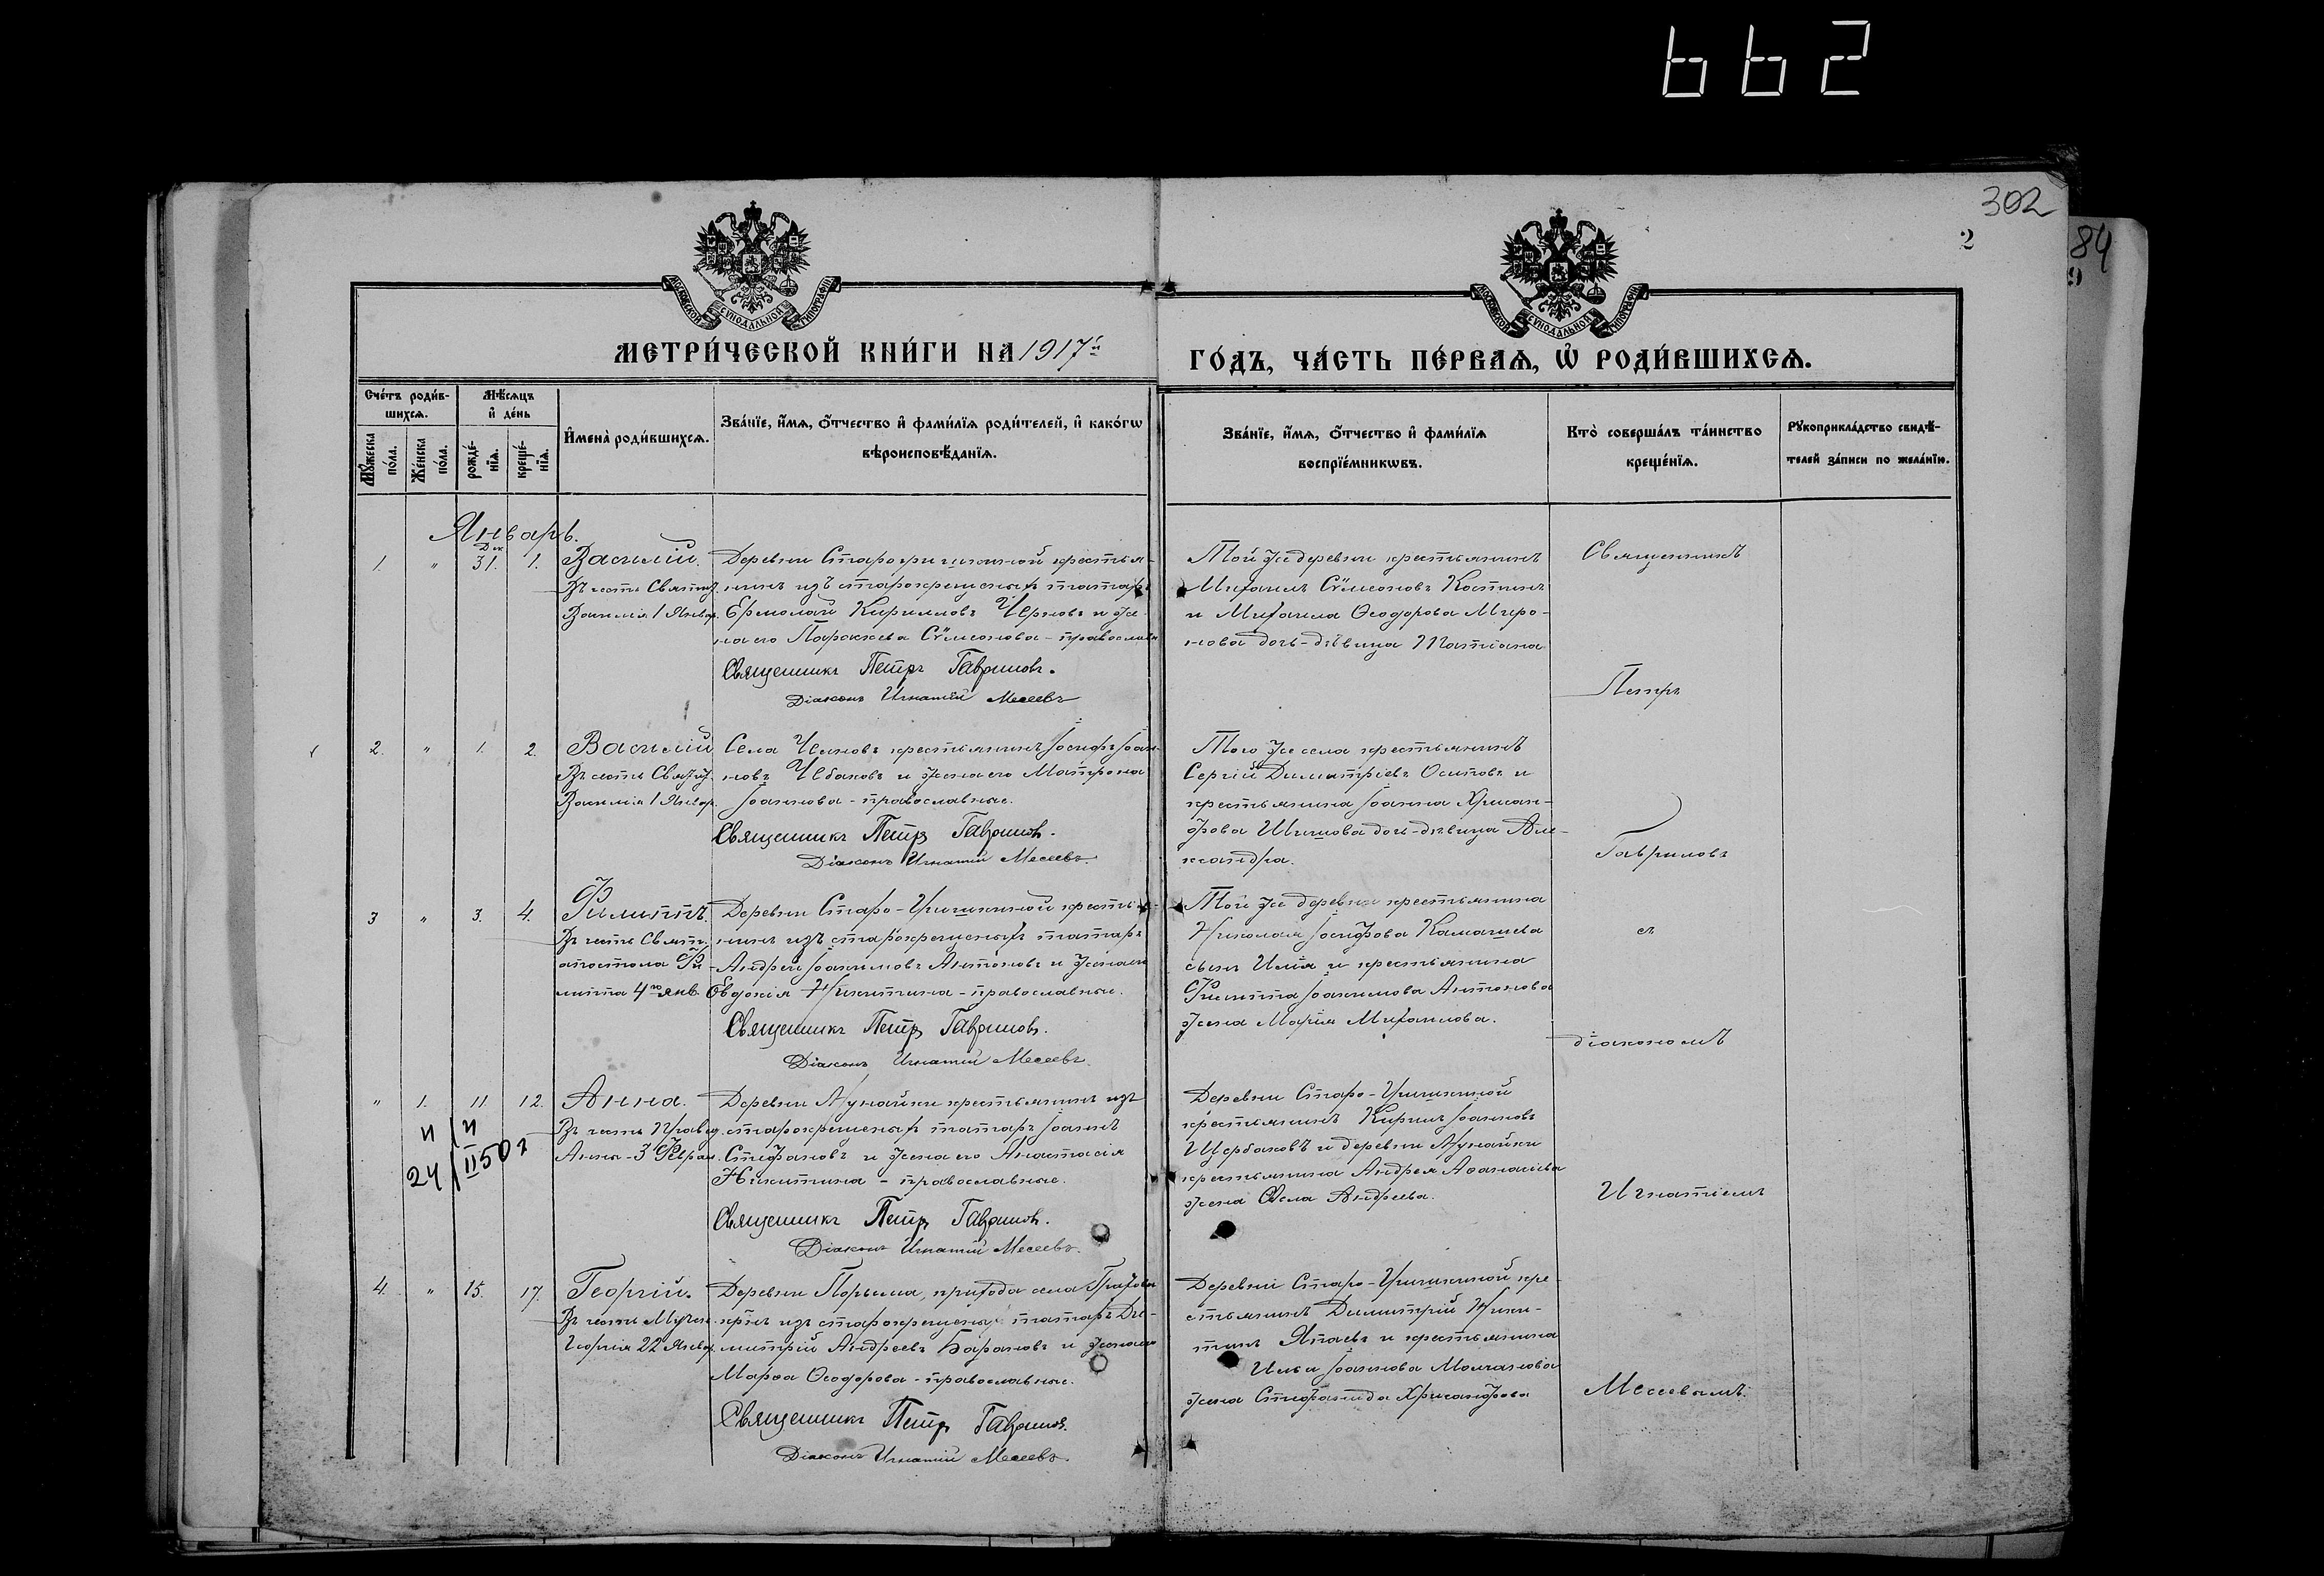 662
302
2
84
МОСКОВСКОЙ СѴНОДАЛЬНОЙ ТИПОГРАФІИ
МОСКОВСКОЙ СѴНОДАЛЬНОЙ ТИПОГРАФІИ
МЕТРИ́ЧЕСКОЙ КНИ́ГИ НА 1917й
ГО́ДЪ, ЧА́СТЬ ПЕ́РВАѦ, Ѡ҆ РОДИ́ВШИХСѦ.
Сче́тъ роди́в-
шихсѧ.
Мѣ́сѧцъ
и҆ де́нь
Мꙋ́жеска по́ла.
Же́нска по́ла.
рожде́-
нїѧ.
креще́-
нїѧ.
И҆мена̀ роди́вшихсѧ.
Зва́нїе, и҆́мѧ, ѻ҆́тчество и҆ фами́лїѧ роди́телей, и҆ како́гѡ
вѣроисповѣ́данїѧ.
Зва́нїе, и҆́мѧ, ѻ҆́тчество и҆ фами́лїѧ
воспрїе́мникѡвъ.
Кто̀ соверша́лъ та́инство
креще́нїѧ.
Рꙋкоприкла́дство свидѣ́-
телей за́писи по жела́нїю.
Январь.
1. " Дек. 31. 1. Василій.
Въ честь Святит.
Василія 1 Января.
Деревни крестья-
нинъ изъ старокрещеныхъ татаръ
Ермолай Кирилловъ Черновъ и же-
на его Параскева Сѵмеонова - православн.
Священникъ Петръ Гавриловъ.
Діаконъ Игнатій Месеевъ
Той же деревни крестьянинъ
Михаилъ Сѵмеоновъ Костинъ
и Михаила Ѳеодорова Миро-
нова дочь-дѣвица Татіана
Священникъ
Петръ
2. " 1. 2. Василій
Въ честь Свят.
Василія 1 Январ.
Села крестьянинъ Іосифъ Іоан-
новъ Чебаковъ и жена его Матрона
Іоаннова - православные.
Священникъ Петръ Гавриловъ.
Діаконъ Игнатій Месеевъ.
Того же села крестьянинъ
Сергій Димитріевъ Осиповъ и
крестьянина Іоанна Хрисан-
фова дочь-дѣвица Але-
ксандра.
Гавриловъ
3 " 3. 4. Филиппъ.
Въ честь Свят.
апостола Фи-
липпа 4го янв.
Деревни Старо- крестья-
нинъ изъ старокрещеныхъ татаръ
Андрей Іоакимовъ Антоновъ и жена его
Евдокія Никитина - православные.
Священникъ Петръ Гавриловъ.
Діаконъ Игнатій Месеевъ.
Той же деревни крестьянина
Николая Іосифова Камашева
сынъ Илія и крестьянина
Филиппа Іоакимова Антонова
жена Марія Михаилова.
съ
діакономъ
" 1. 11. 12. Анна.
Въ честь Правед.
Анны - 3 Феврал.
И/И
24/II 50 г
Деревни крестьянинъ изъ
старокрещеныхъ татаръ Іоаннъ
Стефановъ и жена его Анастасія
Никитина - православные.
Священникъ Петръ Гавриловъ.
Діаконъ Игнатій Месеевъ.
Деревни Старо-
крестьянинъ Кириллъ Іоанновъ
Щербаковъ и деревни
крестьянина Андрея Аѳанасіева
жена Ѳекла Андреева.
Игнатіемъ
4. " 15. 17. Георгій.
Въ честь Мучен.
Георгія 22 Январ.
Деревни прихода села Грахова
кр-нъ изъ старокрещеныхъ татаръ Ди-
митрій Андреевъ Барановъ и жена его
Марѳа Ѳеодорова - православные.
Священникъ Петръ Гавриловъ.
Діаконъ Игнатій Месеевъ.
Деревни Старо- кре-
стьянинъ Димитрій Ники-
тинъ и крестьянина
Ильи Іоаннова Молчанова
жена Стефанида Хрисанфова
Месеевымъ.